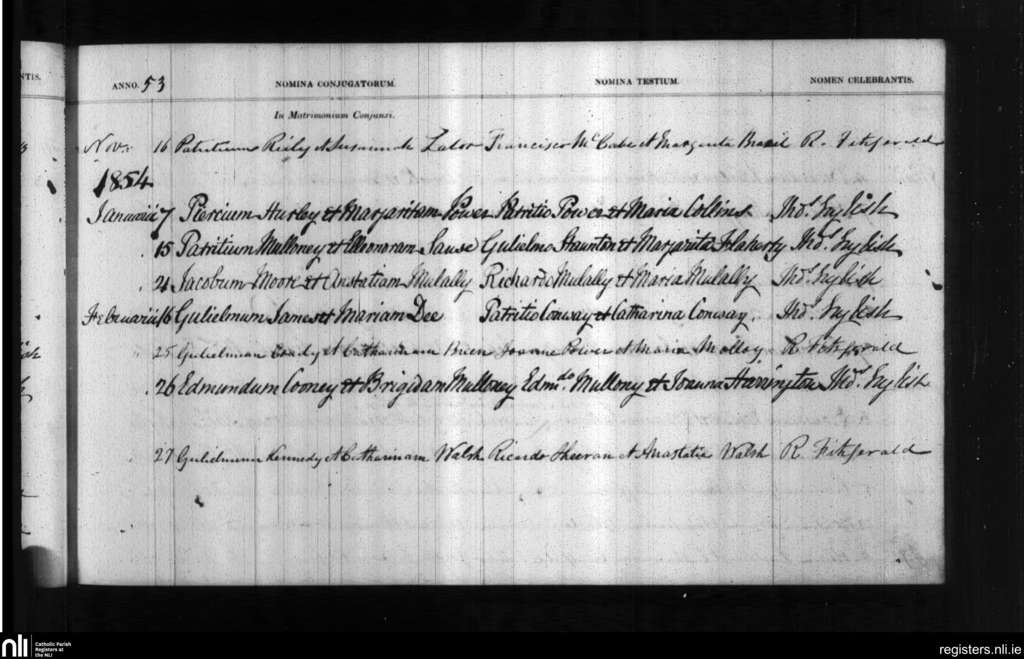 NTIS.
ANNO. 53 NOMINA CONJUGATORUM. NOMINA TESTIUM. NOMEN CELEBRANTIS.
In Matrimonium Conjunxi.
Nov. 16 Patritium Reily et Susannah Lalor Francisco McCabe et Margarita Brazil R. Fitzgerald
1854
Januarii 7 Piercium Hurley et Margaritam Power Patritio Power et Maria Collins Thos. English
15 Patritium Mulloney et Elleonoram Sause Gulielmo Staunton et Margarita Flaherty Thos. English
21 Jacobum Moore et Anstatiam Mulally Richardo Mulally et Maria Mulally Thos. English
Februarii 16 Gulielmum James et Mariam Dee Patritio Conway et Catharina Conway. Thos. English
25 Gulielmum et Catharinam Brien Joanne Power et Maria Molloy R. Fitzgerald
26 Edmundum Cooney et Brigidam Mulloney Edmdo. Mullony et Joanna Harrington Thos. English
27 Gulielmum Kennedy et Catharinam Walsh Ricardo Sheeran et Anastatia Walsh R. Fitzgerald
nli Catholic Parish
Registers at
the NLI
registers.nli.ie